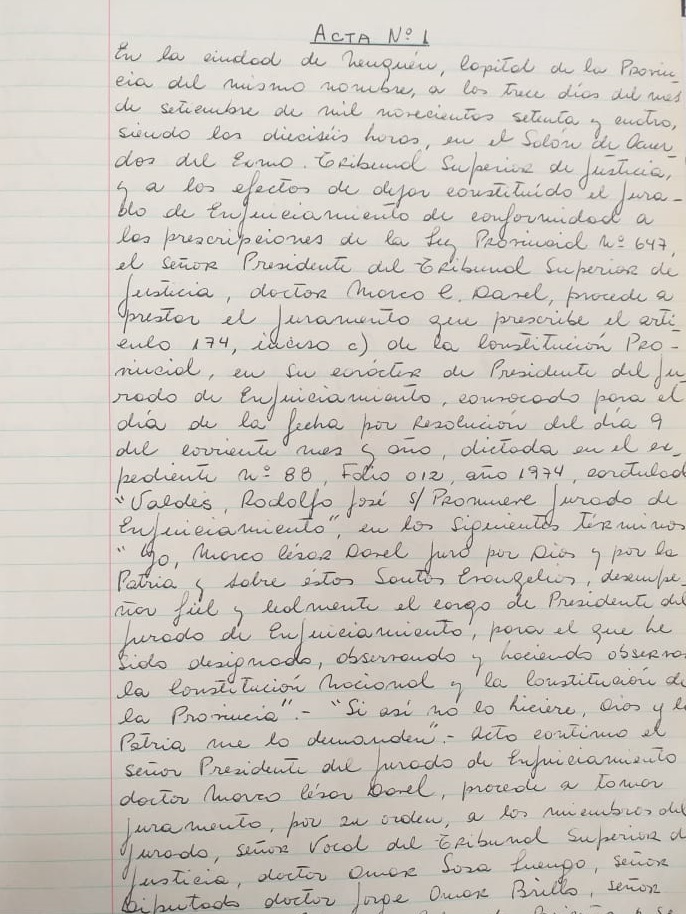 ACTA Nº 1
En la ciudad de Neuquén, Capital de la Provin-
cia del mismo nombre, a los trece días del mes
de setiembre de mil novecientos setenta y cuatro,
siendo las dieciséis horas, en el Salón de Acuer-
dos del Excmo. Tribunal Superior de Justicia,
y a los efectos de dejar constituído el Jura-
do de Enjuiciamiento de conformidad a
las prescripciones de la Ley Provincial Nº 647,
el señor Presidente del Tribunal Superior de
Justicia, doctor Marco C. Dasel, procede a
prestar el juramento que prescribe el artí-
culo 174, inciso c) de la Constitución Pro-
vincial, en su carácter de Presidente del Ju
rado de Enjuiciamiento, convocado para el
día de la fecha por Resolución del día 9
del corriente mes y año, dictada en el ex-
pediente Nº 88, Folio 012, año 1974, caratulad
"Valdés, Rodolfo José s/ Promueve Jurado de
Enjuiciamiento", en los siguientes términos
" Yo, Marco César Dasel juro por Dios y por la
Patria y sobre éstos Santos Evangelios, desempe-
ñar fiel y lealmente el cargo de Presidente del
Jurado de Enjuiciamiento, para el que he
sido designado, observando y haciendo observar
la Constitución Nacional y la Constitución de
la Provincia".- "Si así no lo hiciere, Dios y la
Patria me lo demanden".- Acto contínuo el
señor Presidente del Jurado de Enjuiciamiento
doctor Marco César Dasel, procede a tomar
juramento, por su orden, a los miembros del
Jurado, señor Vocal del Tribunal Superior d
Justicia, doctor Omar Sosa Luengo, señor
Diputado doctor Jorge Omar Brillo, señor